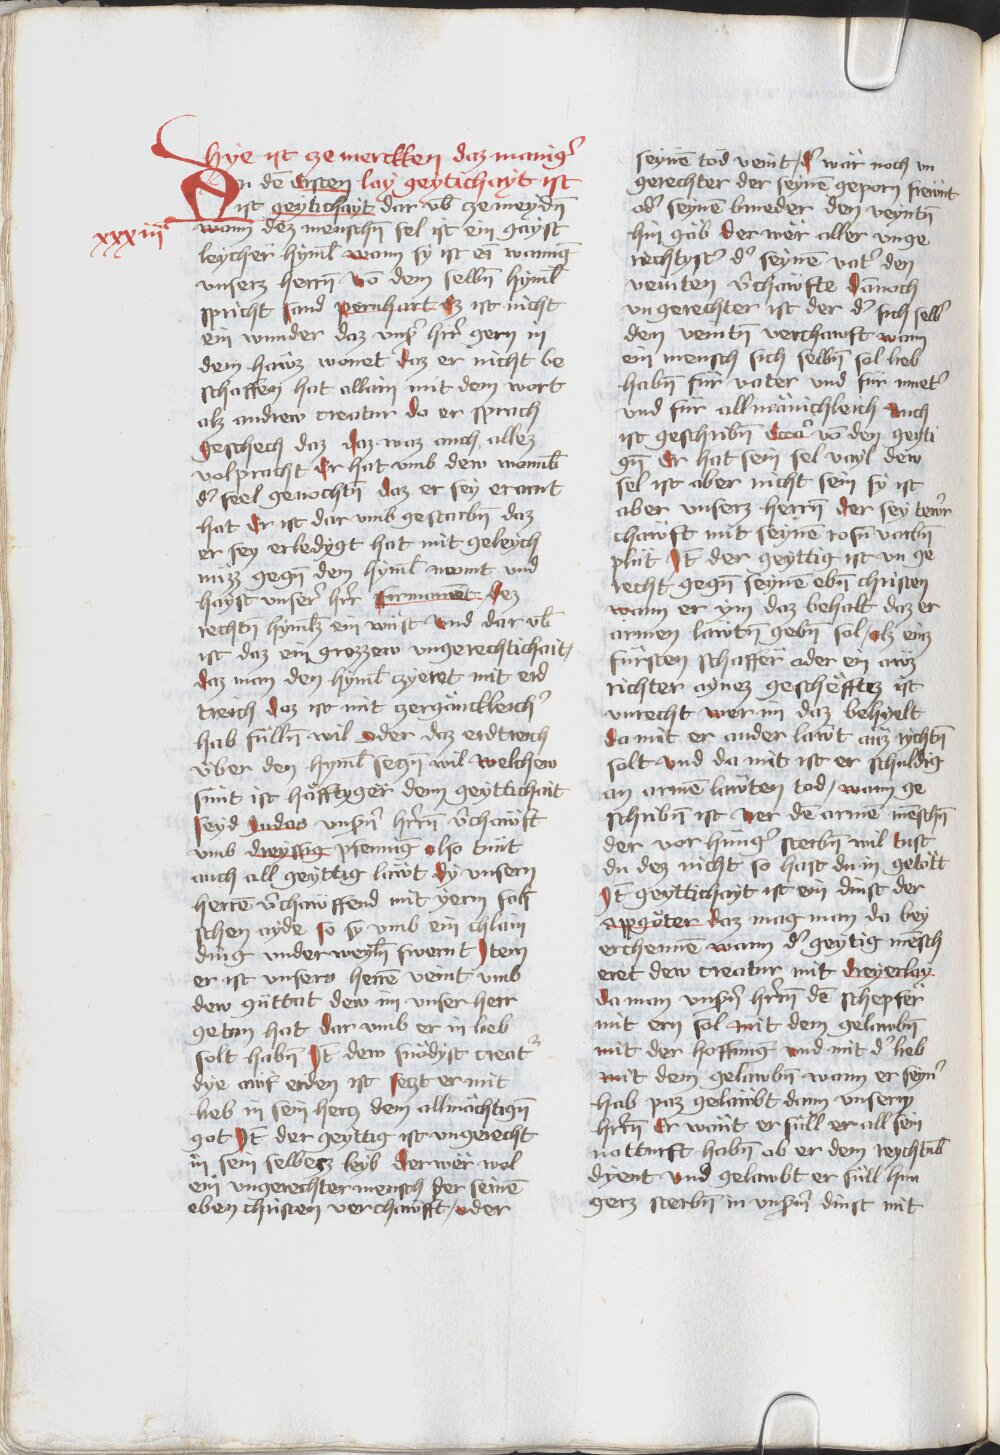 hye ist ze merckken daz manigͬ
An dē ersten lay geytichayt ist
ist geytichayt dar vb̄ ze meydn̄
xxxiiiᵃ
wann dez menschn̄ sel ist ein gayst
leycher hyml̄ wann sy ist ei wanūg
vnserz herrn̄ vō dem selbn̄ hyml̄
spricht sand pernhart Ez ist nicht
ein wunder daz vnsͬ hrͬ gern in
dem hawz wonet daz er nicht be
schaffen hat allain mit dem wort
alz andrew creatur do er sprach
Geschech daz daz waz auch allez
volpracht Er hat vmb dew womūg
dͬ seel geuochtn̄ daz er sey eramt
hat Er ist dar vmb gestarbn̄ daz
er sey erledygt hat mit geleych
nuzz gegn̄ dem hyml̄ nemt vnd
hayst vnserͬ hrͬ firmament dez
rechtn̄ hymlz ein wüst vnd dar vb̄
ist daz ein grozzew vngerechtichait /
daz man den hyml̄ czyeret mit erd
treich daz ist mit zergänckleichͬ
hab fülln̄ wil oder daz erdtreich
v̈ber den hyml̄ seczn̄ wil welchew
sünt ist häfftyger denn geyttichait
seyd Judas vnsͬn hrͬn v̄chawft
vmb dreyssig pfennig also tuut
auch all geyttig läwt dy vnsern
herrē v̄chawffend mit yern fal
schen ayde so sy vmb ein chlain
ding vnder weyln̄ swernt Item
er ist vnsers herrē veint vmb
dew güttat dew im vnser herr
getan hat dar vmb er in lieb
solt habn̄ It̄ dew snödyst creatͬ
dye awf erden ist seczt er mit
lieb in sein hercz dem allmächtign̄
got It̄ der geyttig ist vngerecht
in sein selbers leyb der wër wol
ein vngerechter mensch der seinē
eben christen verchawfft / oder
seynē tod veint / dͬ wär noch vn
gerechter der seynē geporn frewnt
odͬ seynē brueder den veyntn̄
hin gäb der wër aller vnge
rechtystͬ dͬ seynē vatͬ den
veinten v̄chawfte dānoch
vngerechter ist der dͬ sich selbͬ
den veintn̄ verchawft wann
ein mensch sich selbn̄ sol lieb
habn̄ für vater vnd für muetͬ
vnd für allmänichleich Auch
ist geschribn̄ Eccͬ vō den geyti
gn̄ Er hat sein sel vayl dew
sel ist aber nicht sein sy ist
aber vnserz herrn̄ der sey tewr
chawft mit seynē rosn̄ varbn̄
plüt It̄ der geyttig ist vn ge
recht gegn̄ seynē ebn̄ christen
wann er ym daz behalt daz er
ärmen läwtn̄ gebn̄ sol / alz einz
fürsten schaffër oder ein awz
richter aynez geschëfftz ist
vnrecht wer im daz behyelt
da mit er ander läwt auz rychtn̄
solt vnd da mit ist er schuldig
an armē läwten tod / wann ge
schribn̄ ist wer dē armē mēschn̄
der vor hungͬ sterbn̄ wil tust
du dez nicht so hast du in getött
It̄ geyttichayt ist ein dinst der
appgöter daz mag man da bey
erchennē wann dͬ geytig mēsch
eret dew creatur mit dreyerlay
da man vnsͬn hrͬn dē schepfër
mit ern sol mit dem gelawbn̄
mit der hoffnūg vnd mit dͬ lieb
mit dem gelawbn̄ wann er seynͬ
hab paz gelawbt dann vnserm
hrͬn Er wänt er süll er all sein
notturft habn̄ ob er dem reychtūb
dyent vnd gelawbt er süll hun
gerz sterbn̄ in vnsͬm dinst mit